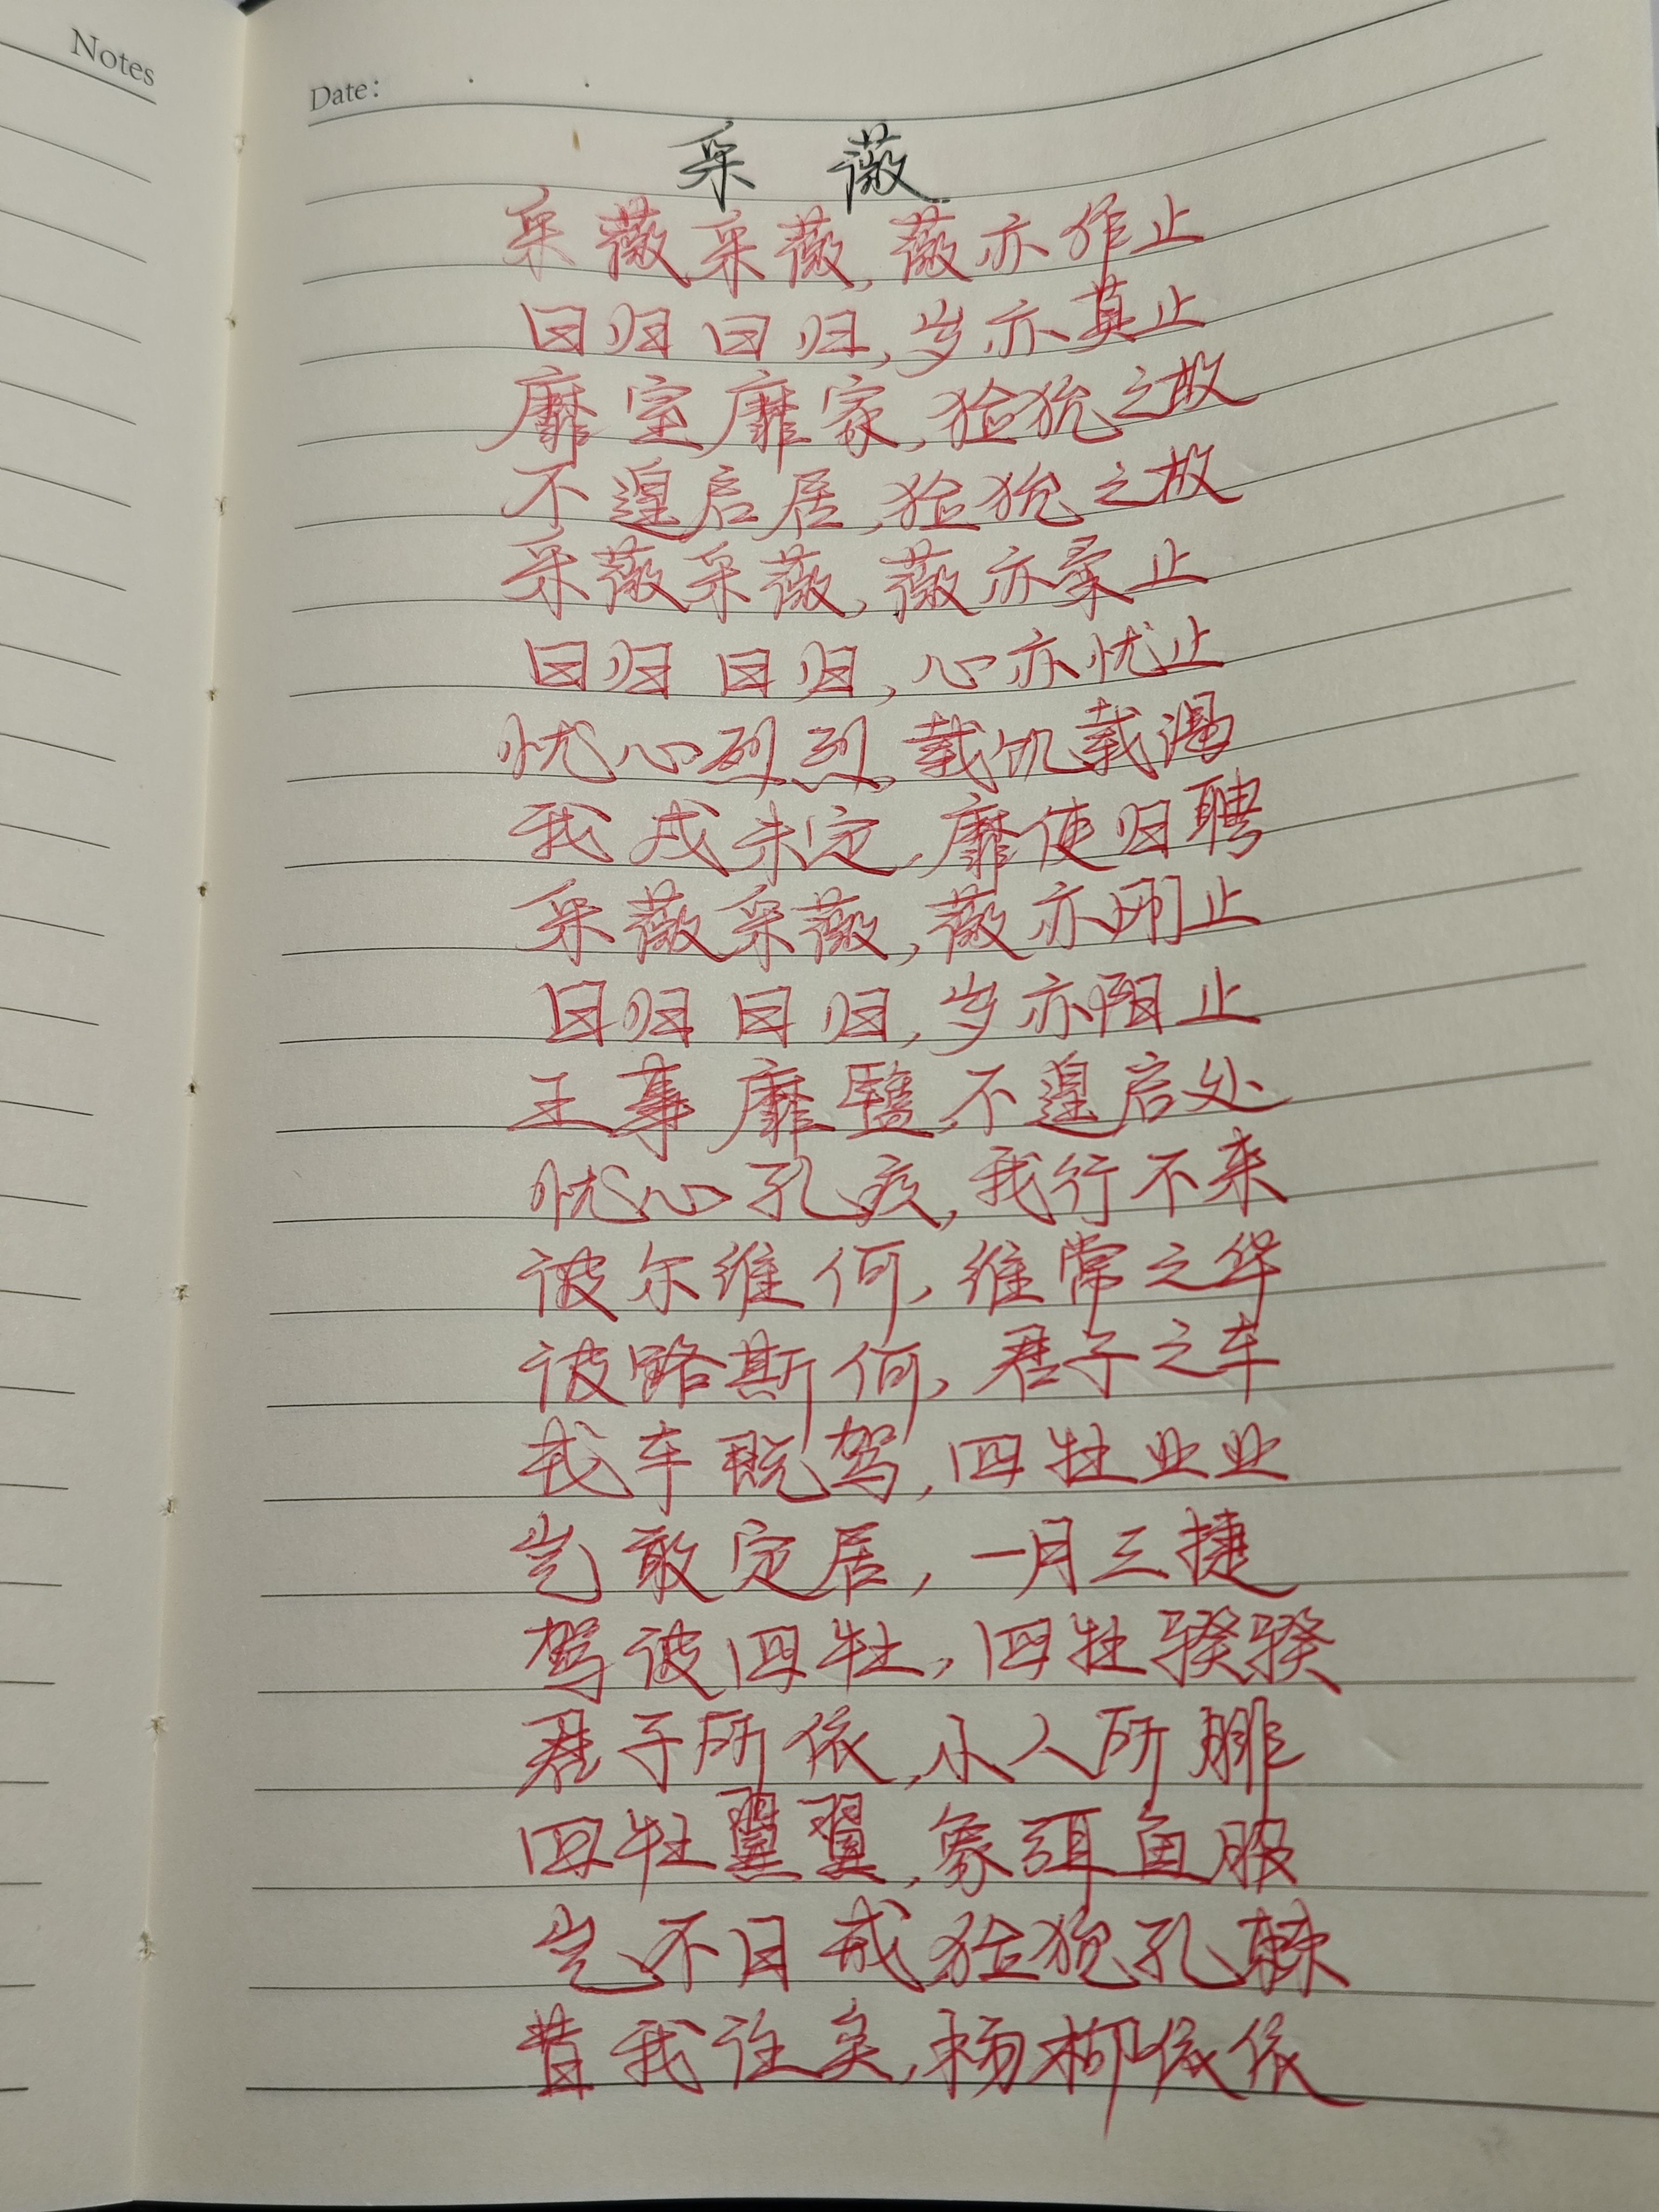 Notes
Date:
采薇
采薇采薇,薇亦作止
曰归曰归,岁亦莫止
靡室靡家,猃狁之故
不遑启居,猃狁之故
采薇采薇,薇亦柔止
曰归曰归,心亦忧止
忧心烈烈,载饥载渴
我戍未定,靡使归聘
采薇采薇,薇亦刚止
曰归曰归,岁亦阳止
王事靡盬,不遑启处
忧心孔疚,我行不来
彼尔维何,维常之华
彼路斯何,君子之车
戎车既驾,四牡业业
岂敢定居,一月三捷
驾彼四牡,四牡骙骙
君子所依,小人所腓
四牡翼翼,象弭鱼服
岂不日戒猃狁孔棘
昔我往矣,杨柳依依